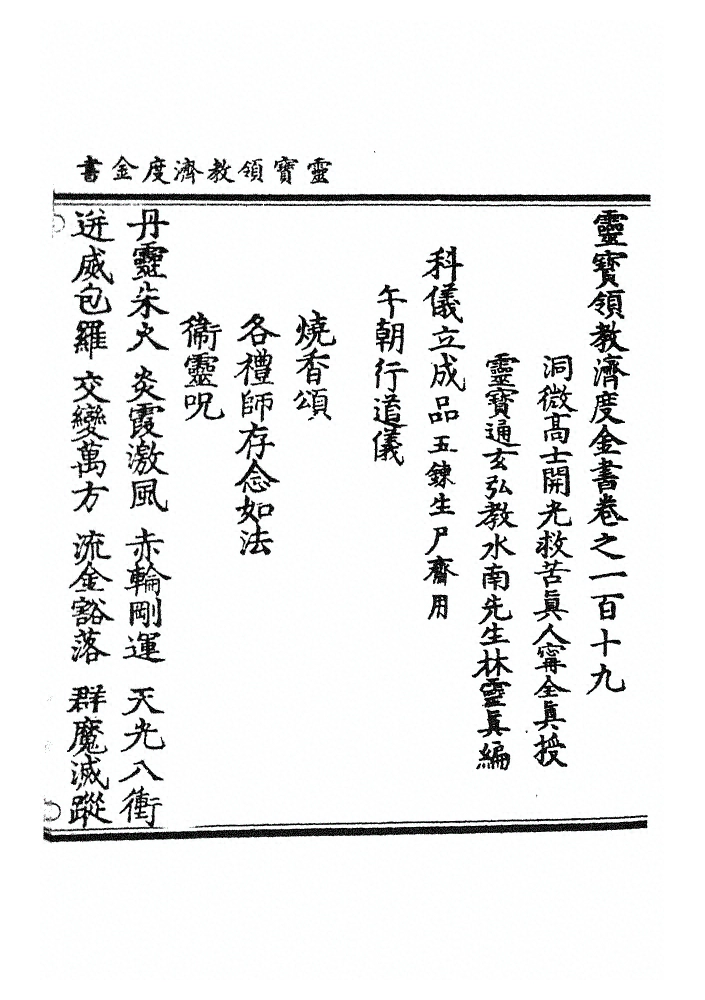 靈寶領教濟度金書
靈寶領教濟度金書卷之一百十九
洞微高士開光救苦眞人寗全眞授
靈寶通玄弘教水南先生林靈眞編
科儀立成品五鍊生尸齋用
午朝行道儀
燒香頌
各禮師存念如法
衞靈呪
丹靈朱火 炎霞激風 赤輪剛運 天光八衝
迸威包羅 交變萬方 流金豁落 群魔滅蹤